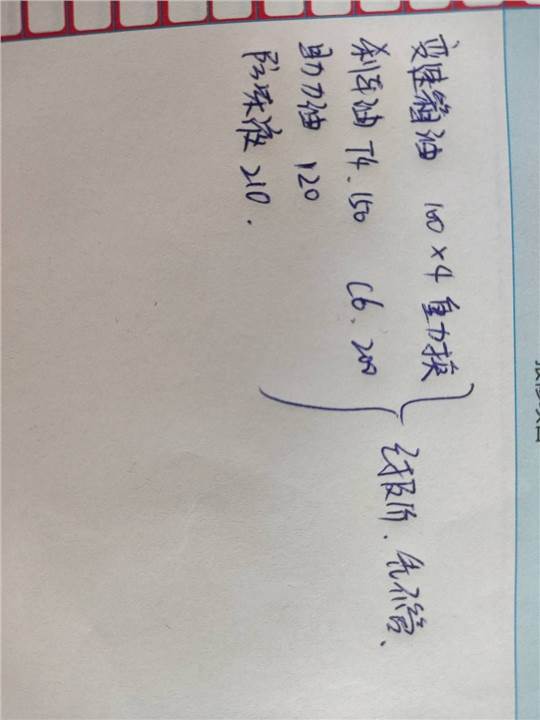 变速箱油 100×4 重力换
刹车油 T4.150 C6.200
助力油 120
防冻液 210.
已报价.先不管、